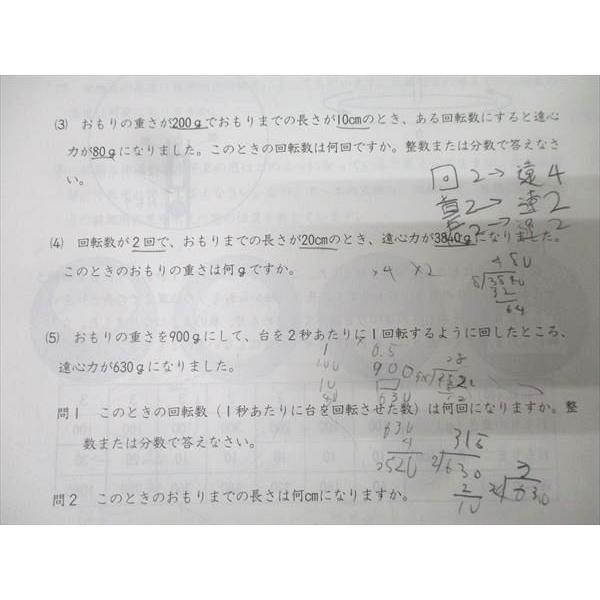 (3) おもりの重さが200gでおもりまでの長さが10cmのとき、ある回転数にすると遠心
力が80gになりました。このときの回転数は何回ですか。整数または分数で答えなさ
い。
回 2→遠 4
重2→遠2
長2→遠2
(4) 回転数が2回で、おもりまでの長さが20cmのとき、遠心力が3840gになりました。
このときのおもりの重さは何gですか。
×4 ×2
480
(5) おもりの重さを900gにして、台を2秒あたりに1回転するように回したところ、
遠心力が630gになりました。
1 0.5
900
630
問1 このときの回転数（1秒あたりに台を回転させた数）は何回になりますか。整
数または分数で答えなさい。
630
4
2520
315
2 630
2
10
問2 このときのおもりまでの長さは何cmになりますか。